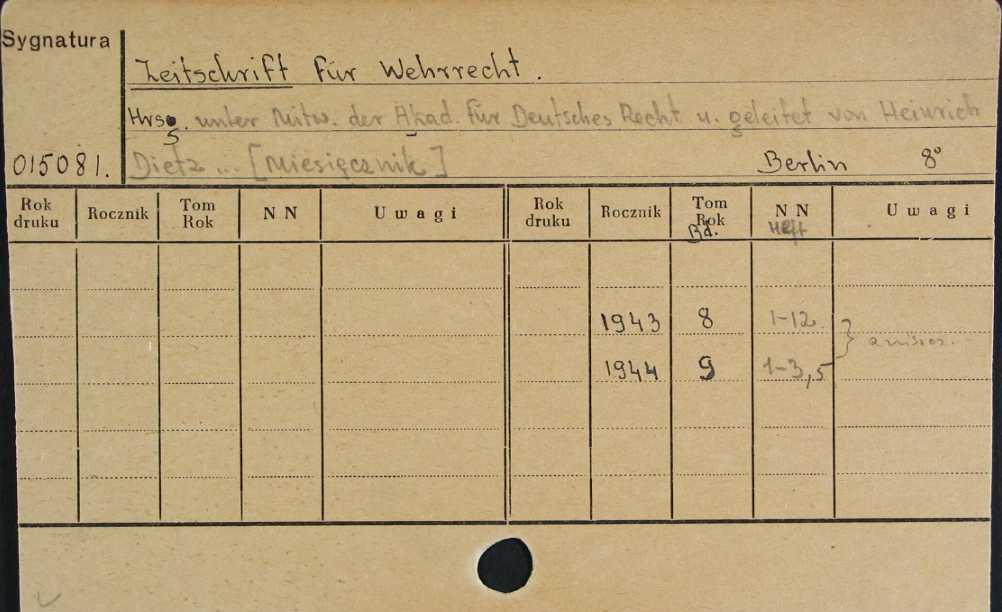 Sygnatura
Zeitschrift für Wehrrecht.
Hrsg. unter Mitw. der Akad. für Deutsches Recht u. geleitet von Heinrich
015081. Dietz ... [Miesięcznik] Berlin 8°
Rok druku Rocznik Tom Rok N N Uwagi Rok druku Rocznik Tom Rok N N Uwagi
Bd. Heft
1943 8 1-12
1944 9 1-3,5